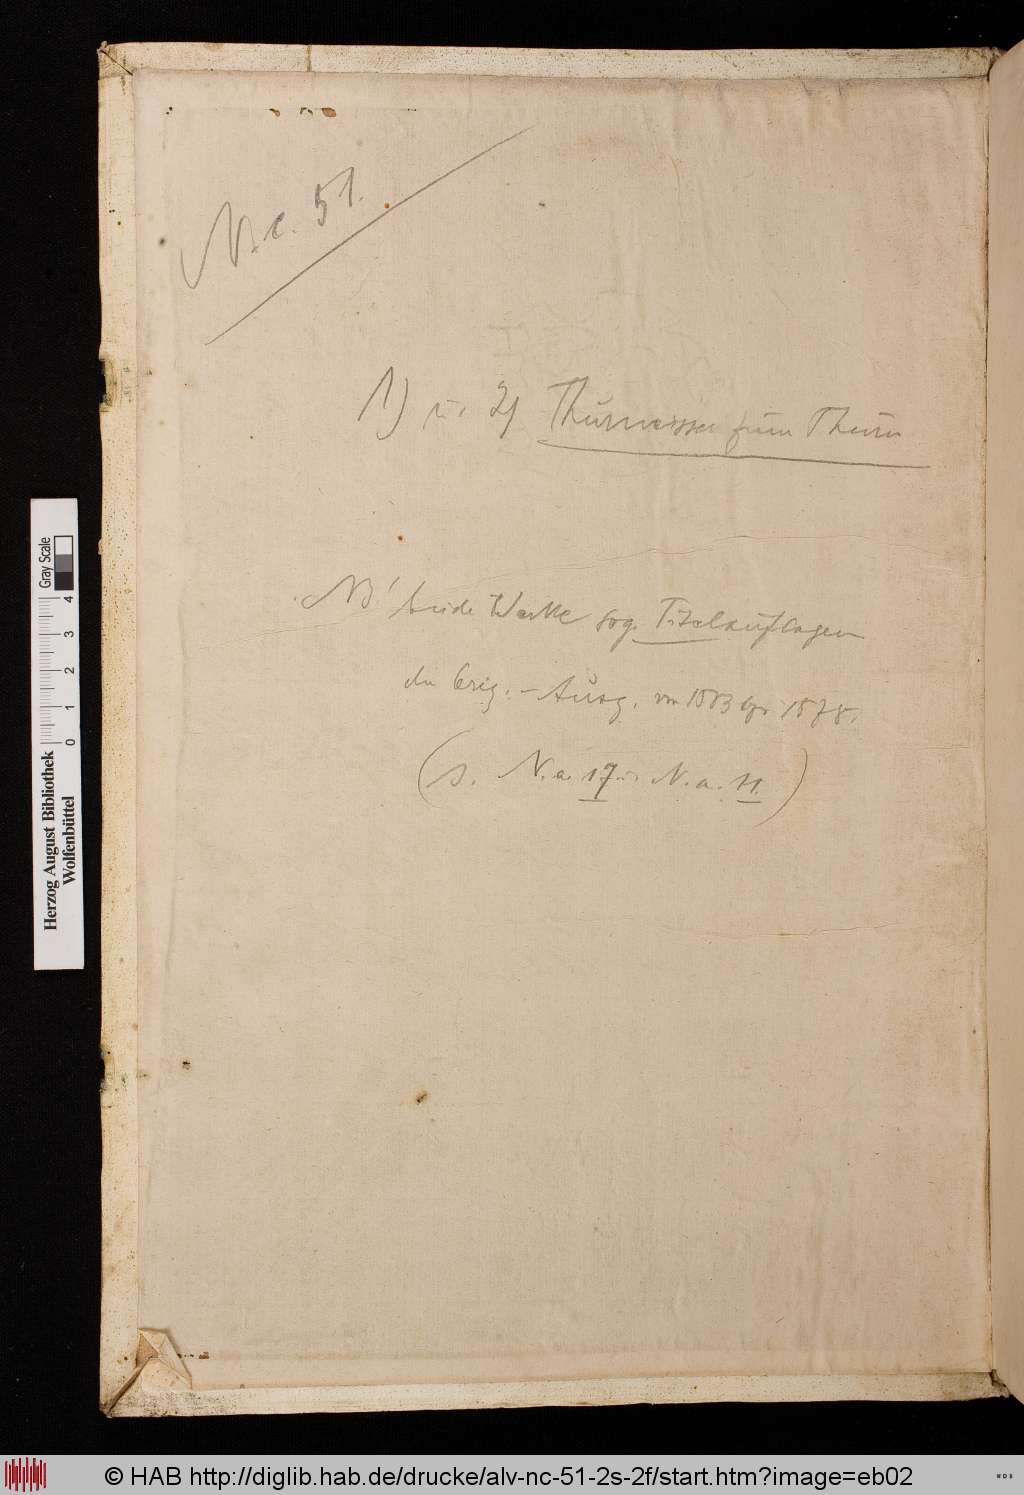 N.c. 51.
1) u. 2) Thurneisser zum Thurn
NB! beide Werke sog. Titelauflagen
der Orig.-Ausg. von 1583 bzw. 1578.
(s. N.a. 17 u. N.a. 11.)
Herzog August Bibliothek
Wolfenbüttel
0 1 2 3 4
Gray Scale
© HAB http://diglib.hab.de/drucke/alv-nc-51-2s-2f/start.htm?image=eb02
WDB